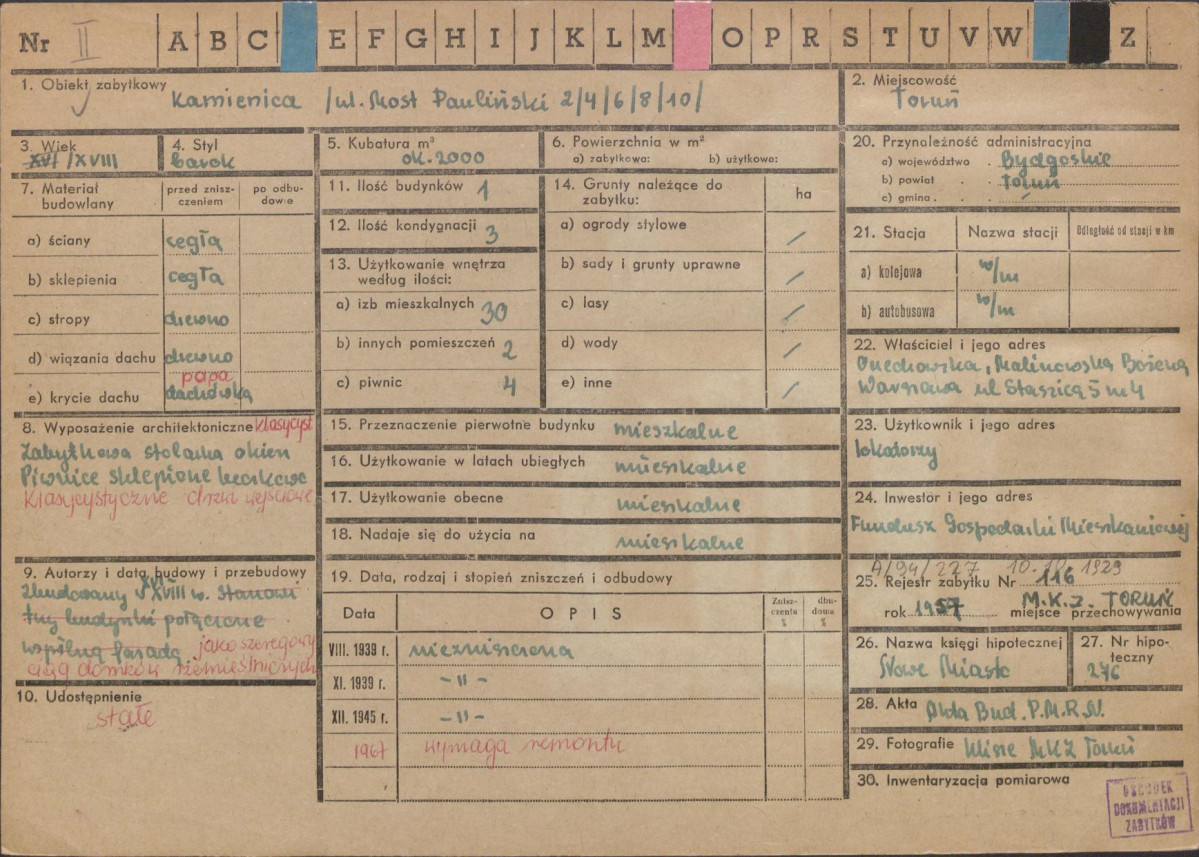 Nr II A B C E F G H I J K L M O P R S T U V W Z
1. Obiekt zabytkowy
Kamienica /ul. Most Pauliński 2/4/6/8/10/
2. Miejscowość
Toruń
3. Wiek
XVI/XVIII
4. Styl
barok
5. Kubatura m³
ok. 2000
6. Powierzchnia w m²
a) zabytkowa: b) użytkowa:
7. Materiał budowlany
przed zniszczeniem
po odbudowie
a) ściany cegła
b) sklepienia cegła
c) stropy drewno
d) wiązania dachu drewno
papa
e) krycie dachu dachówka
8. Wyposażenie architektoniczne klasycyst
Zabytkowa stolarka okien
Piwnice sklepione beczkowo
Klasycystyczne drzwi wejściowe
9. Autorzy i data budowy i przebudowy
XVI
Zbudowany XVIII w. Stanowi
trzy budynki połączone
wspólną fasadą jako szeregowy
ciąg domków rzemieślniczych
10. Udostępnienie
stałe
11. Ilość budynków 1
12. Ilość kondygnacji 3
13. Użytkowanie wnętrza
według ilości:
a) izb mieszkalnych 30
b) innych pomieszczeń 2
c) piwnic 4
14. Grunty należące do
zabytku:
ha
a) ogrody stylowe /
b) sady i grunty uprawne /
c) lasy /
d) wody /
e) inne /
15. Przeznaczenie pierwotne budynku mieszkalne
16. Użytkowanie w latach ubiegłych mieszkalne
17. Użytkowanie obecne mieszkalne
18. Nadaje się do użycia na mieszkalne
19. Data, rodzaj i stopień zniszczeń i odbudowy
Data OPIS Zniszczenia % dbudowa %
VIII. 1939 r. niezniszczona
XI. 1939 r. -"-
XII. 1945 r. -"-
1967 wymaga remontu
20. Przynależność administracyjna
a) województwo Bydgoskie
b) powiat Toruń
c) gmina
21. Stacja Nazwa stacji Odległość od stacji w km
a) kolejowa w/m
b) autobusowa w/m
22. Właściciel i jego adres
Malinowska Bożena
Warszawa ul Staszica 5 m 4
23. Użytkownik i jego adres
lokatorzy
24. Inwestor i jego adres
Fundusz Gospodarki Mieszkaniowej
A/94/227 10.10.1929
25. Rejestr zabytku Nr 116
rok 1957 M.K.Z. TORUŃ
miejsce przechowywania
26. Nazwa księgi hipotecznej
Nowe Miasto
27. Nr hipoteczny
276
28. Akta Akta Bud. P.M.R.N.
29. Fotografie Klisze MKZ Toruń
30. Inwentaryzacja pomiarowa
OŚRODEK
DOKUMENTACJI
ZABYTKÓW